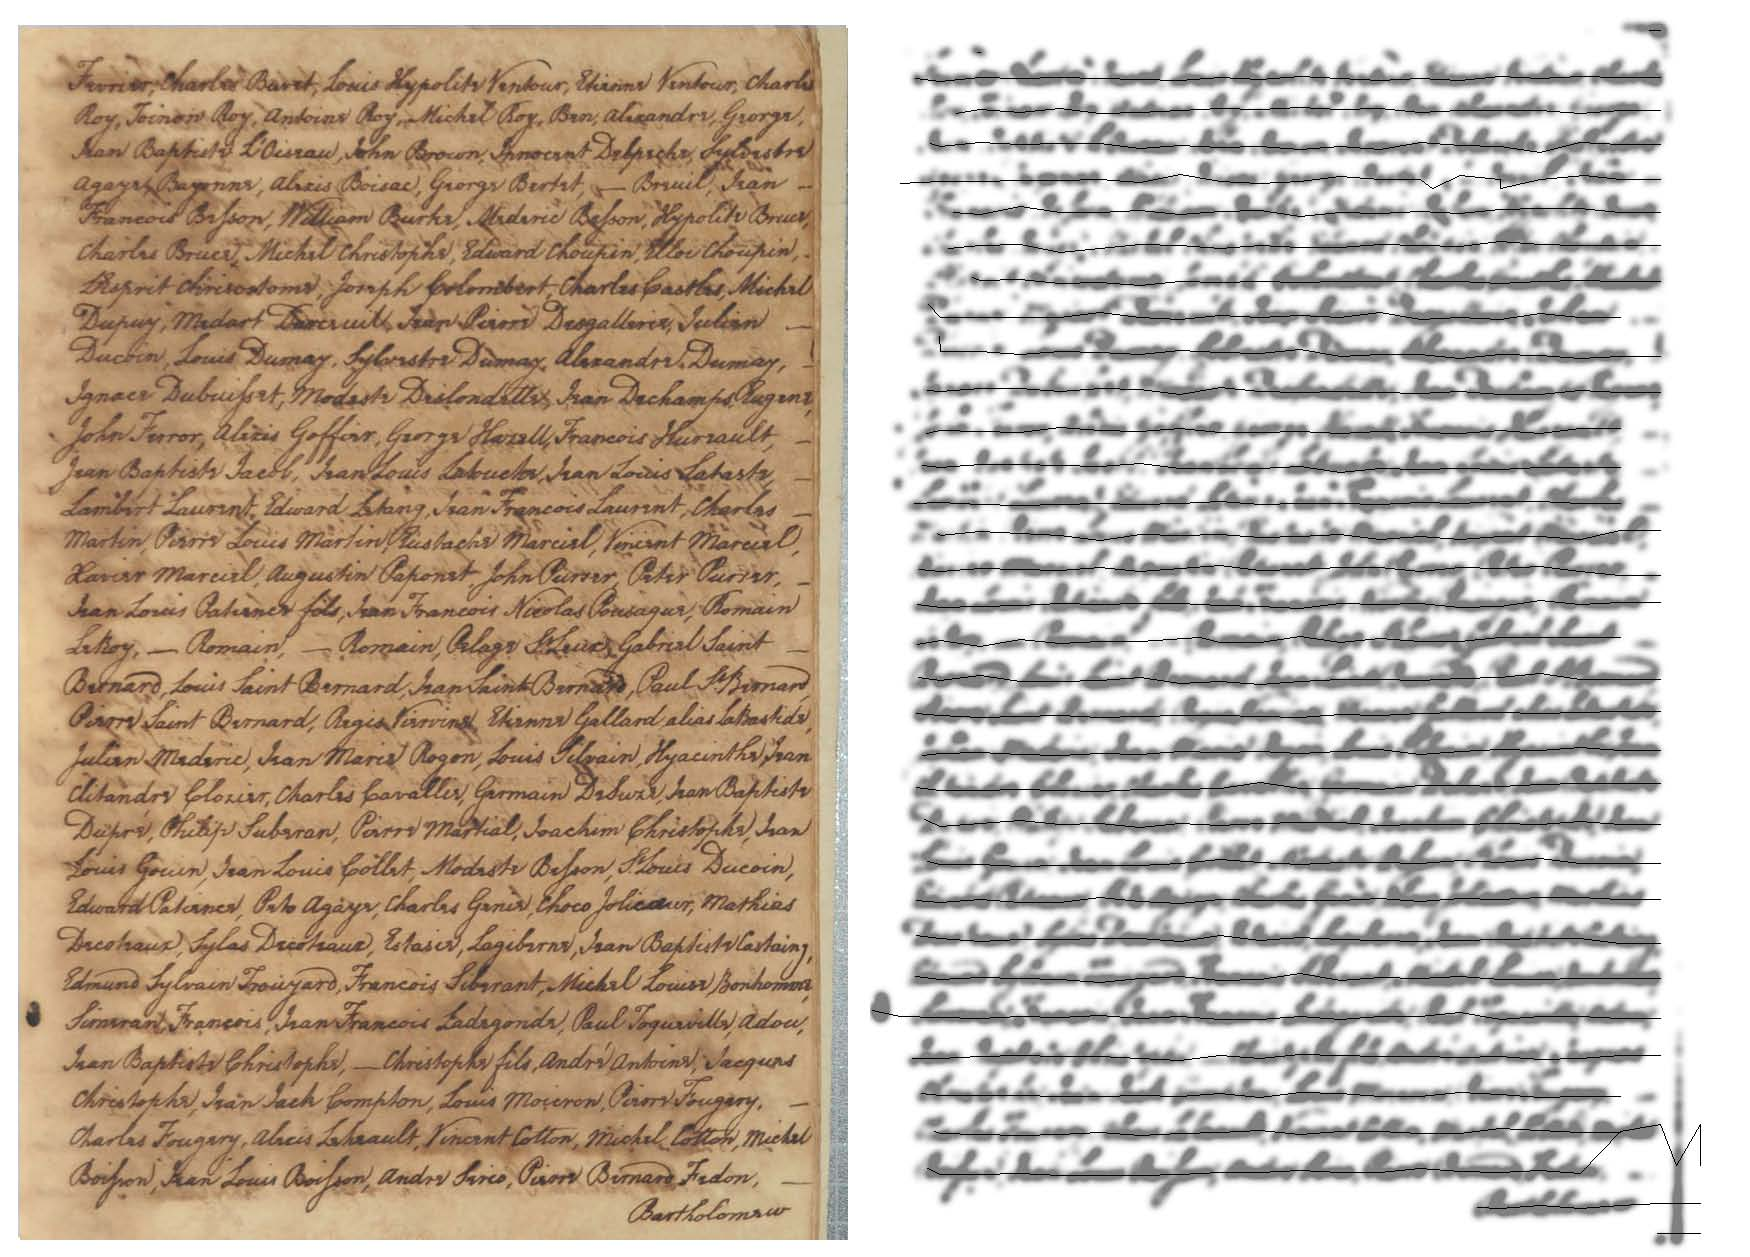 Fevrier, Charles Buvet, Louis Hypolite Ventour, Etienne Ventour, Charles
Roy, Toinon Roy, Antoine Roy, Michel Roy, Ben, Alexandre, George,
Jean Baptiste L'Oiseau, John Brown, Innocent Delpeche, Sylvestre
Agaye, Bayonne, Alexis Boisac, George Bertet, — Breuil, Jean —
Francois Besson, William Burke, Mederic Besson, Hypolite Bruer,
Charles Bruer, Michel Christophe, Edward Choupin, Eloi Choupin,
Esprit Chrisostome, Joseph Colombert, Charles Castles, Michel
Dupuy, Medart Jean Pierre Desgallerie, Julien —
Ducoin, Louis Dumay, Sylvestre Dumay, Alexandre Dumay,
Ignace Dubuisset, Modeste Deslondette, Jean Dechamps, Eugene,
John Ferror, Alexis Goffier, George Hazell, Francois Hureault, —
Jean Baptiste Jacob, Jean Louis Jean Louis Lataste, —
Lambert Laurent, Edward Letang, Jean Francois Laurent, Charles —
Martin, Pierre Louis Martin, Eustache Marciel, Vincent Marciel,
Xavier Marciel, Augustin Paponet, John Purser, Peter Purser, —
Jean Louis Patience fils, Jean Francois Nicolas Pousague, Romain
LeRoy, — Romain, — Romain, Pelage St Leux, Gabriel Saint —
Bernard, Louis Saint Bernard, Jean Saint Bernard, Paul St Bernard
Pierre Saint Bernard, Regis Etienne Gallard alias LaBastide,
Julien Mederic, Jean Marie Rogon, Louis Silvain, Hyacinthe, Jean
Clitandre Clozier, Charles Cavallier, Germain DeSuze, Jean Baptiste
Dupre, Philip Suberan, Pierre Martial, Joachim Christophe, Jean
Louis Gouin, Jean Louis Collet, Modeste Besson, St Louis Ducoin,
Edward Patience, Peto Agaye, Charles Genie, Choco Jolicoeur, Mathias
Decoteaux, Sylas Decoteaux, Estasie, Lagiberne, Jean Baptiste Castaing,
Edmund Sylvain Trouyard, Francois Siberant, Michel Louise Bonhomme,
Simeran, Francois, Jean Francois Ladegonde, Paul Toqueville, Adou,
Jean Baptiste Christophe, — Christophe fils, André Antoine, Jacques
Christophe, Jean Jack Compton, Louis Moieron, Pierre Fougery, —
Charles Fougery, Alexis Leheault, Vincent Cotton, Michel Cotton, Michel
Boisson, Jean Louis Boisson, Andre Pierre Bernard, Fedon, —
Bartholomew